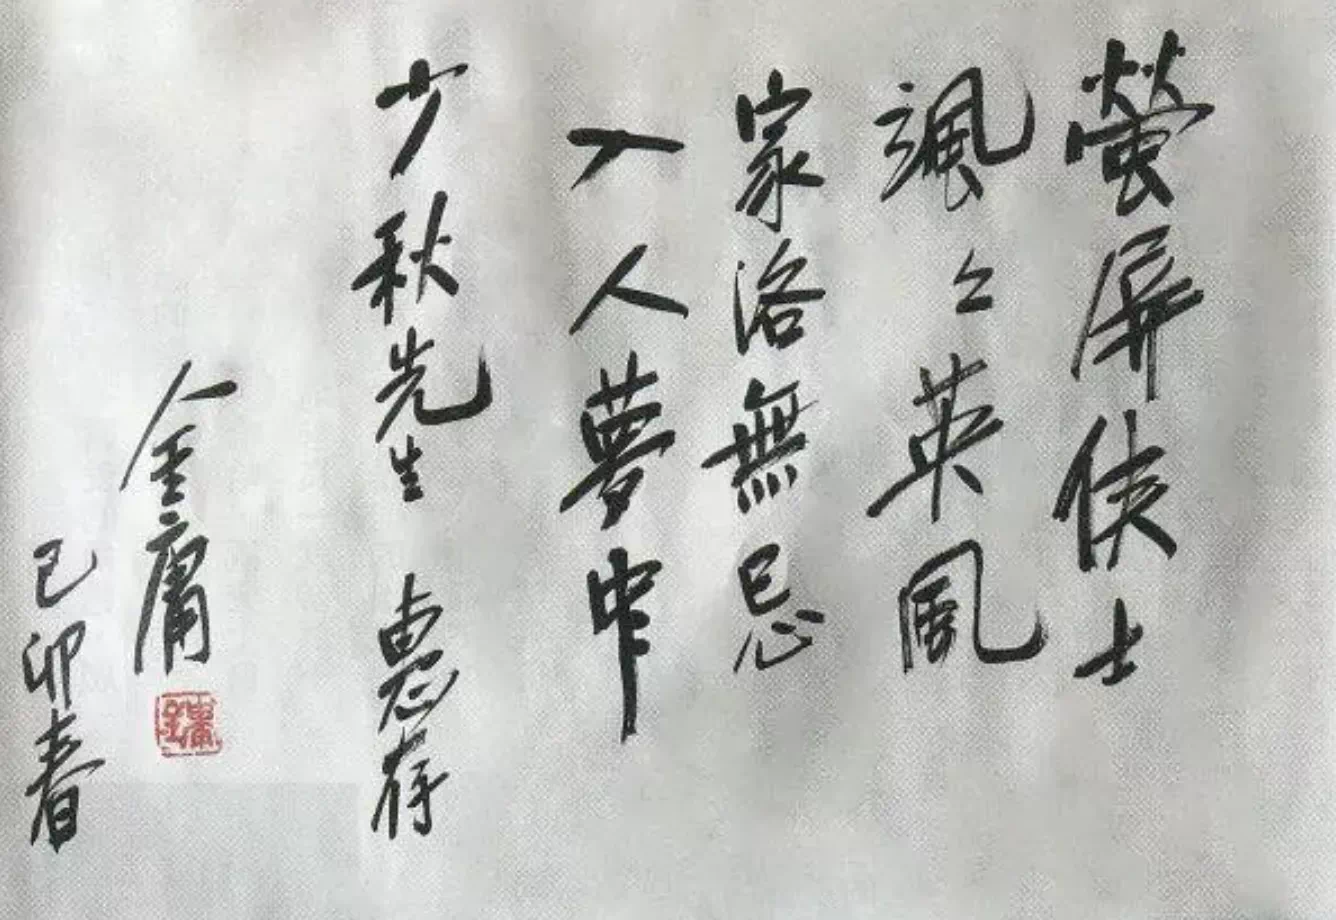 螢屏俠士
颯々英風
家洛無忌
入人夢中
少秋先生 惠存
金庸
己卯春
金庸